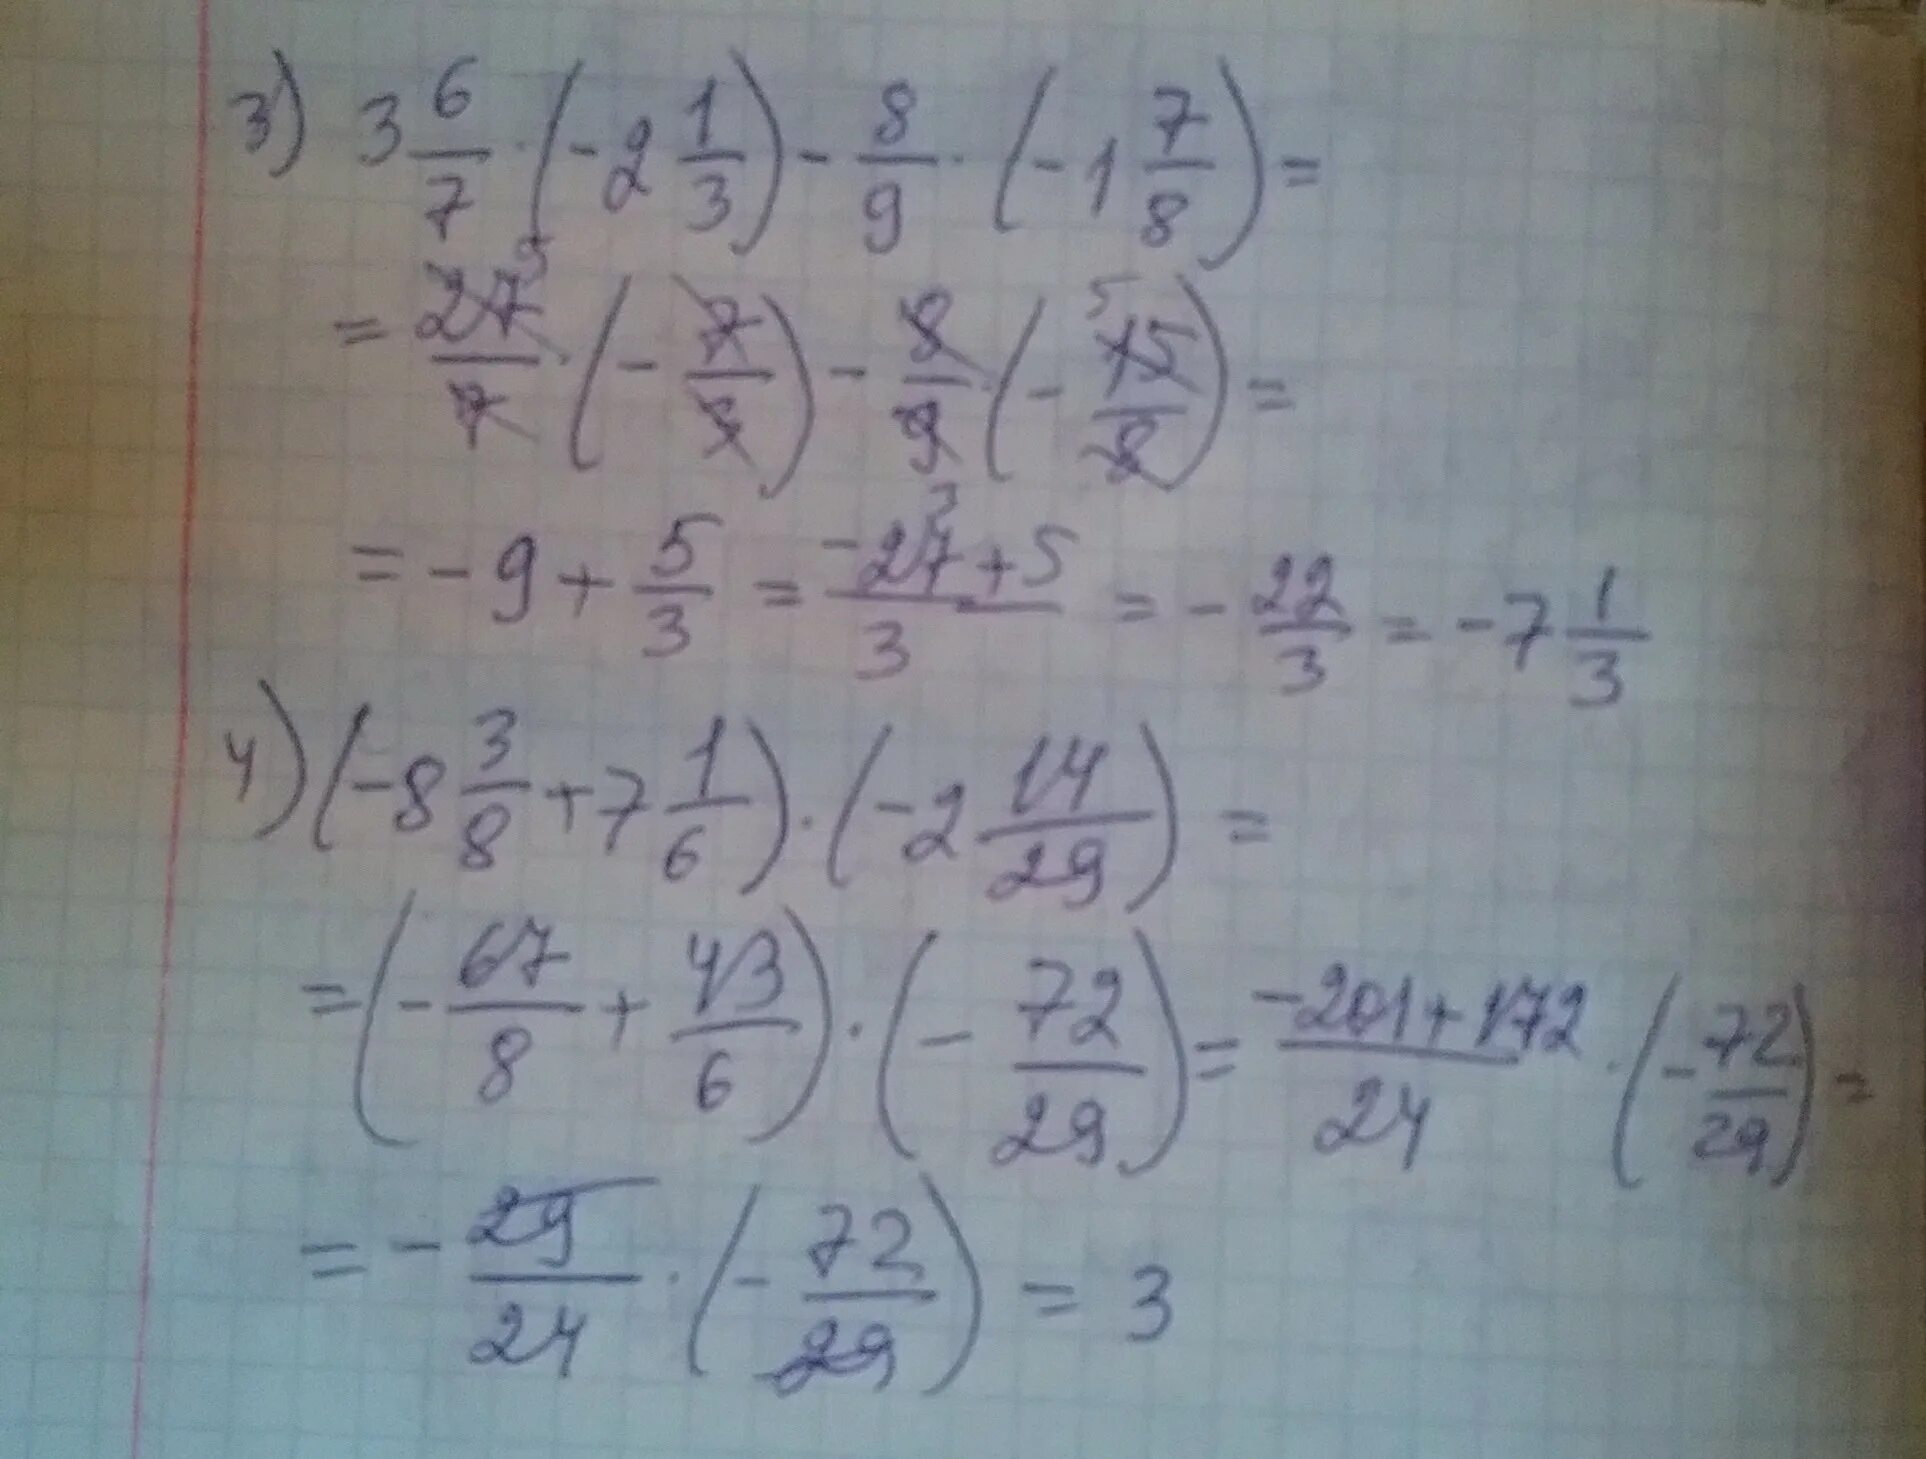 3) 3 6/7 · (-2 1/3) - 8/9 · (-1 7/8) =
= 27/7 · (- 7/3) - 8/9 · (- 15/8) =
= -9 + 5/3 = (-27+5)/3 = - 22/3 = -7 1/3
4) (-8 3/8 + 7 1/6) · (-2 14/29) =
= (- 67/8 + 43/6) · (- 72/29) = (-201+172)/24 · (- 72/29) =
= - 29/24 · (- 72/29) = 3